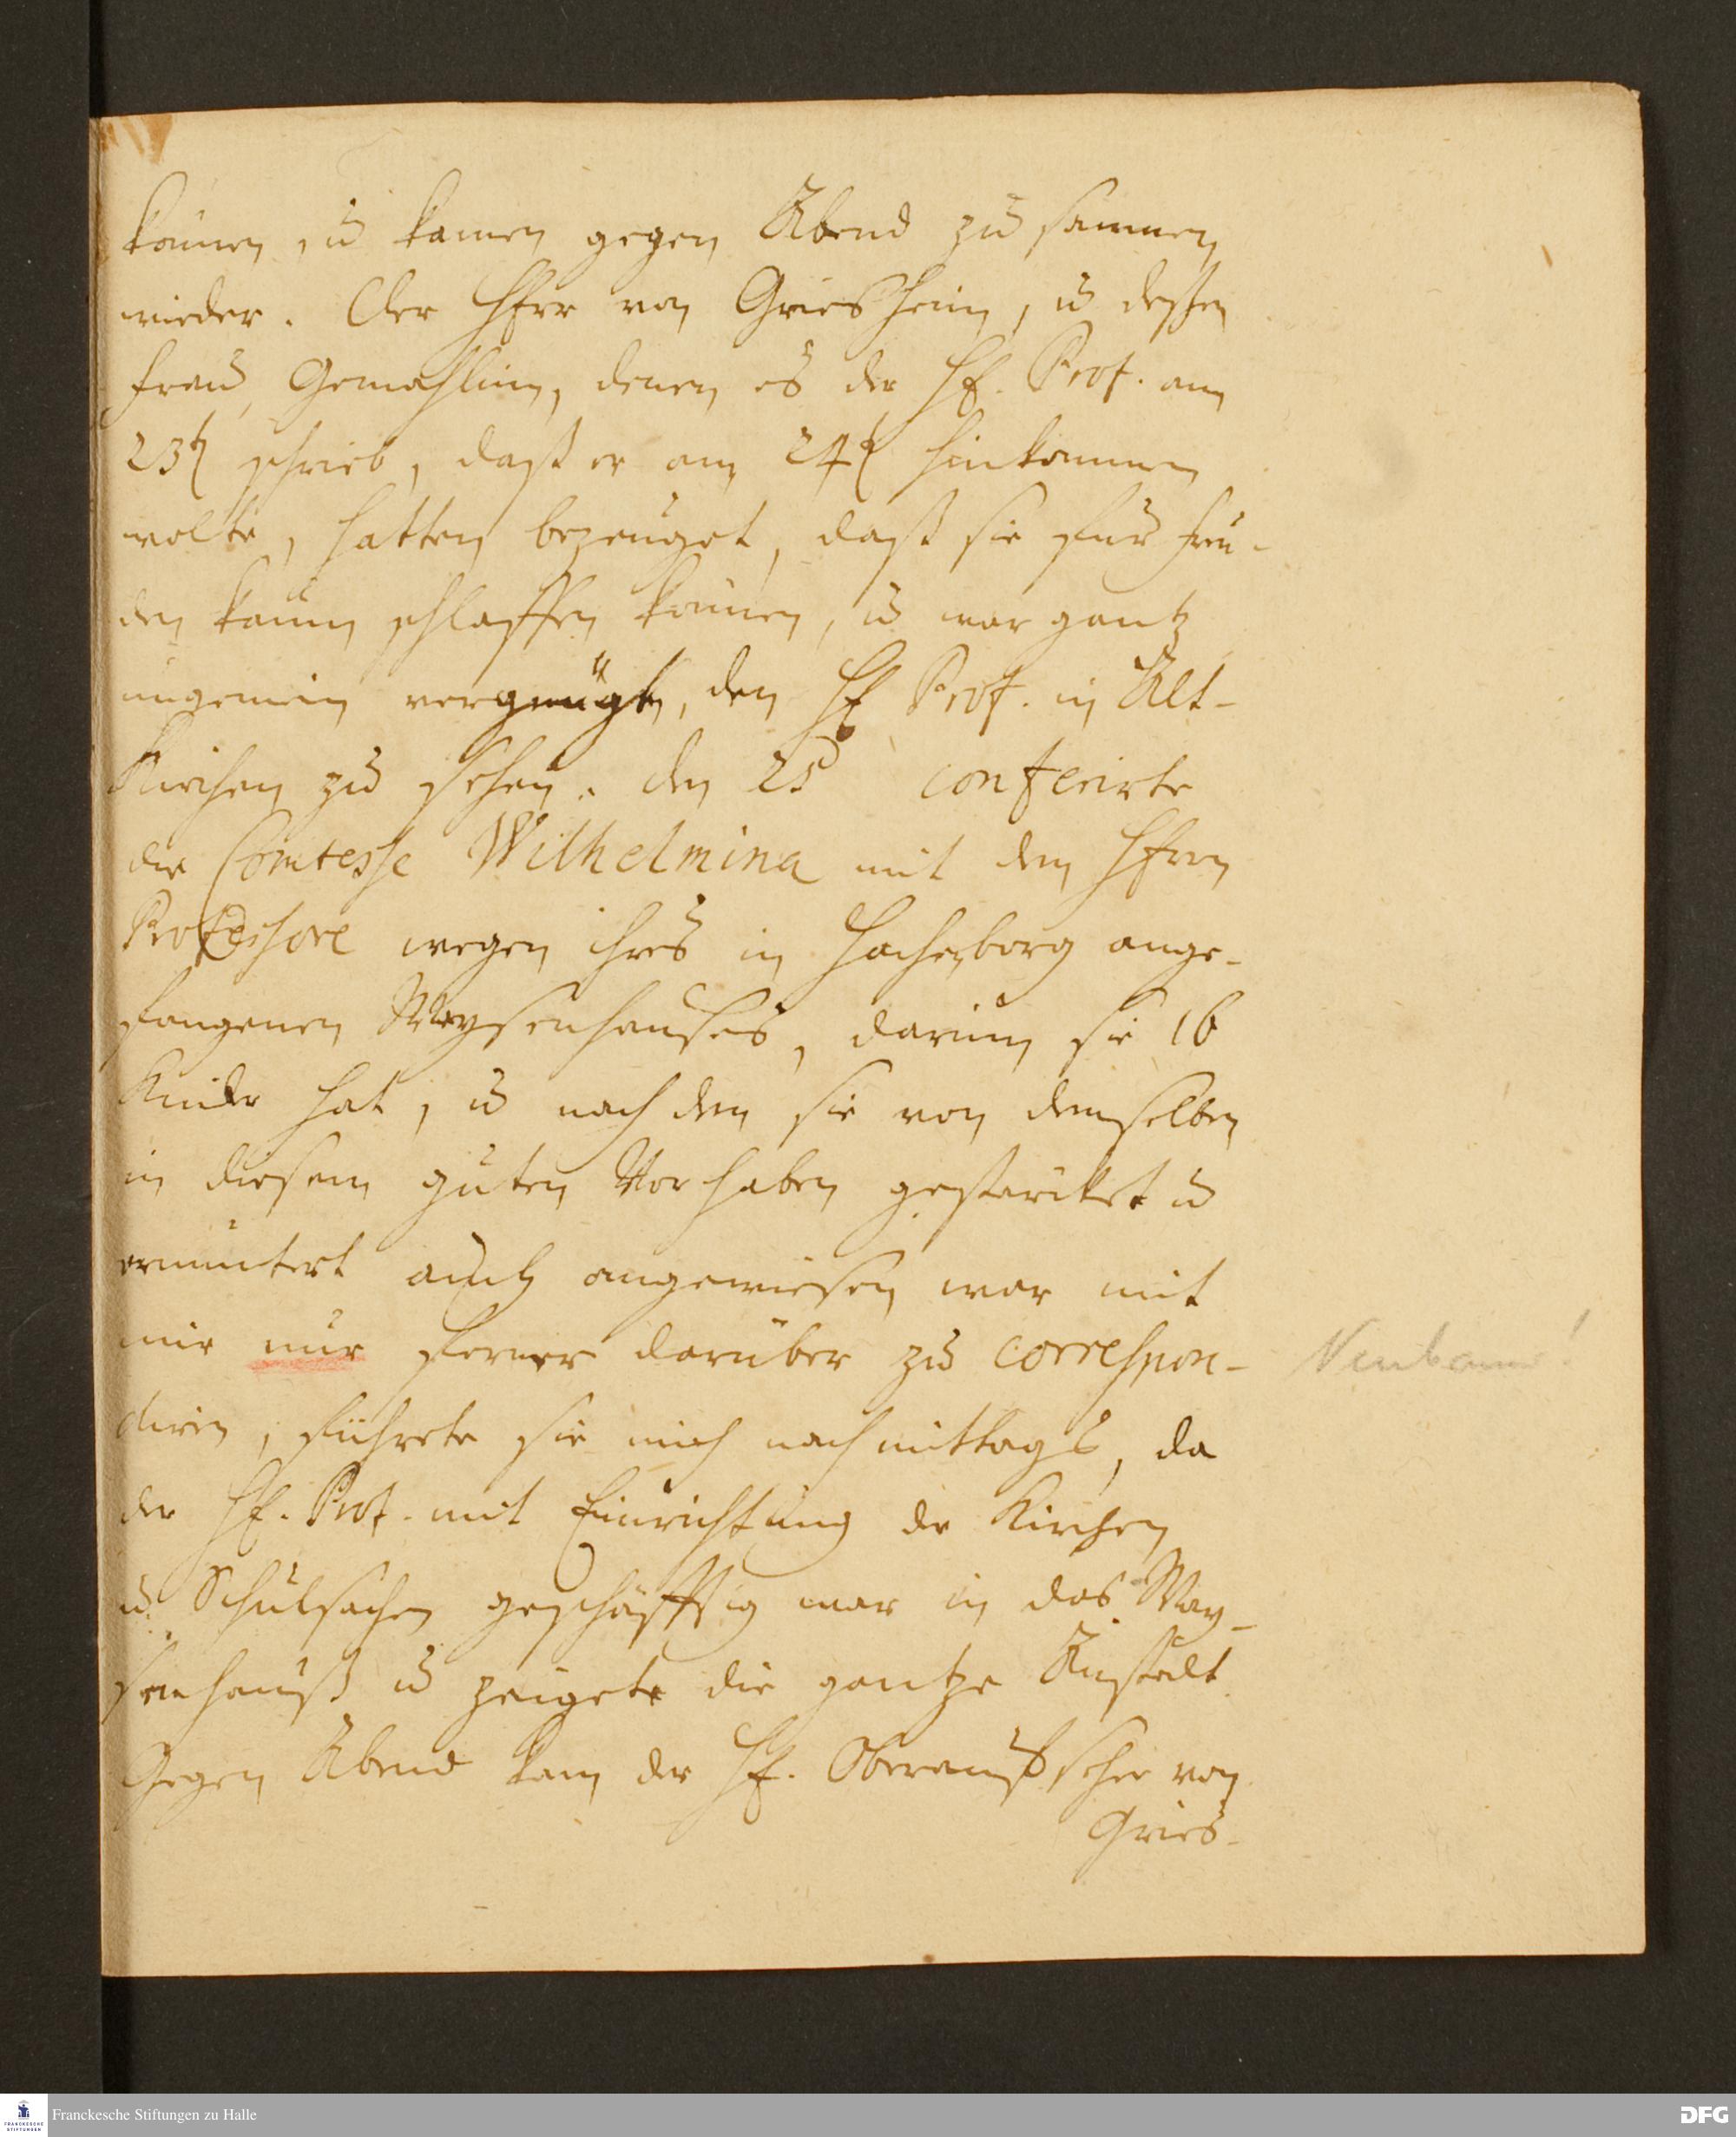 können, u kamen gegen Abend zu sammen
wieder. Der Herr von Griesheim, u deßen
Frau Gemahlin, denen es der H. Prof. am
23t schrieb, daß er am 24t hinkommen
wolte, hatten bezeuget, daß sie für Freu-
den kaum schlaffen können, u war gantz
ungemein vergnügt, den H Prof. in Alt-
Kirchen zu sehen. den 25 conferirte
die Comtesse Wilhelmina mit dem Herrn
Professore wegen ihres in Hachenborg ange-
fangenen Waysenhauses, darinn sie 16
Kinder hat, u nach dem sie von demselben
in diesem guten Vorhaben gestärcket u
ermuntert auch angewiesen war mit
mir nur ferner darüber zu correspon-
diren, führete sie mich nachmittags, da
der H. Prof. mit Einrichtung der Kirchen
u. Schulsachen geschäfftig war in das Way-
senhauß u zeigete die gantze Anstalt
Gegen Abend kam der H. Oberaufseher von
Gries-
Neubauer!
Franckesche Stiftungen zu Halle
FRANCKESCHE STIFTUNGEN
DFG